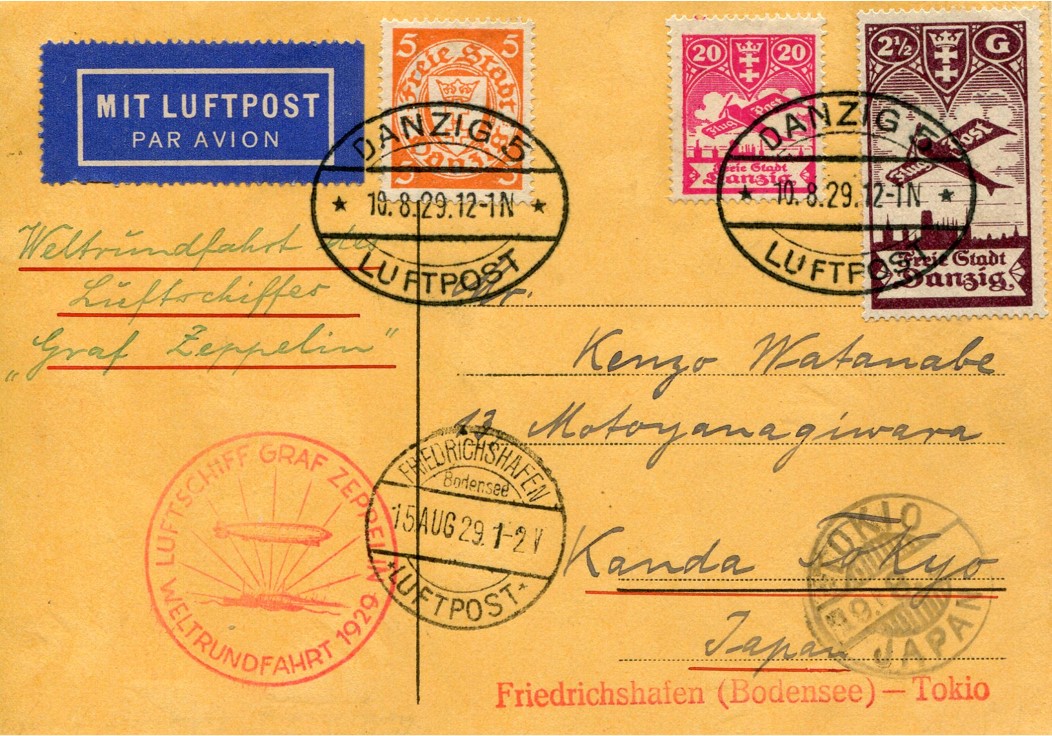 MIT LUFTPOST
PAR AVION
5 5
Freie Stadt
5
20 20
Flug Post
Freie Stadt
Danzig
2½ G
Flugpost
Freie Stadt
Danzig
DANZIG 5
10.8.29.12-1N
LUFTPOST
DANZIG 5
10.8.29.12-1N
LUFTPOST
Weltrundfahrt des
Luftschiffes
„Graf Zeppelin"
Kenzo Watanabe
13 Motoyanagiwara
Kanda Tokyo
Japan
LUFTSCHIFF GRAF ZEPPELIN
WELTRUNDFAHRT 1929
FRIEDRICHSHAFEN
Bodensee
15 AUG 29. 1-2 V
LUFTPOST
TOKIO
JAPAN
Friedrichshafen (Bodensee) — Tokio